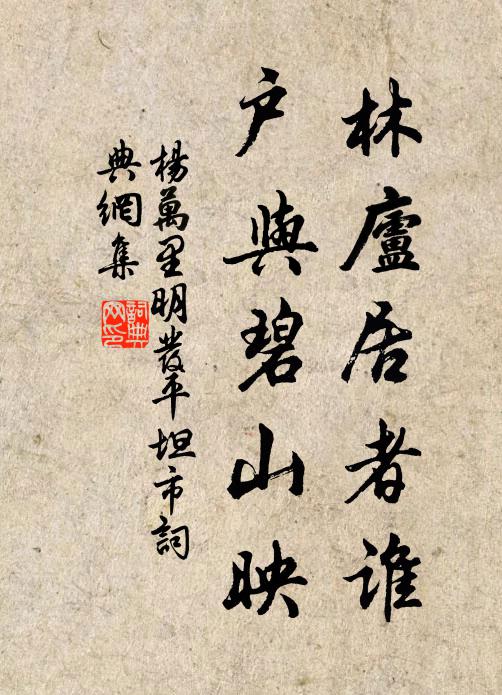 林廬居者誰
户與碧山映
楊萬里明發平坦市詞
典網集
詞典网印